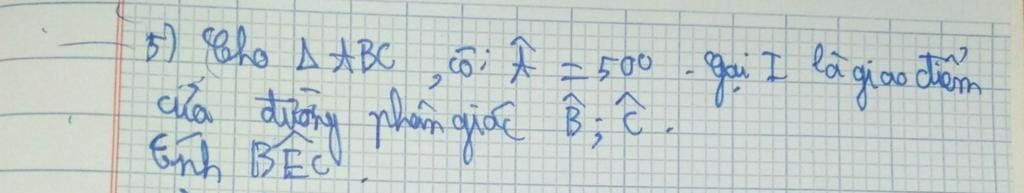 5) Cho Δ ABC, có: Â = 50⁰. gọi I là giao điểm
của đường phân giác B̂; Ĉ.
tính BÊC.